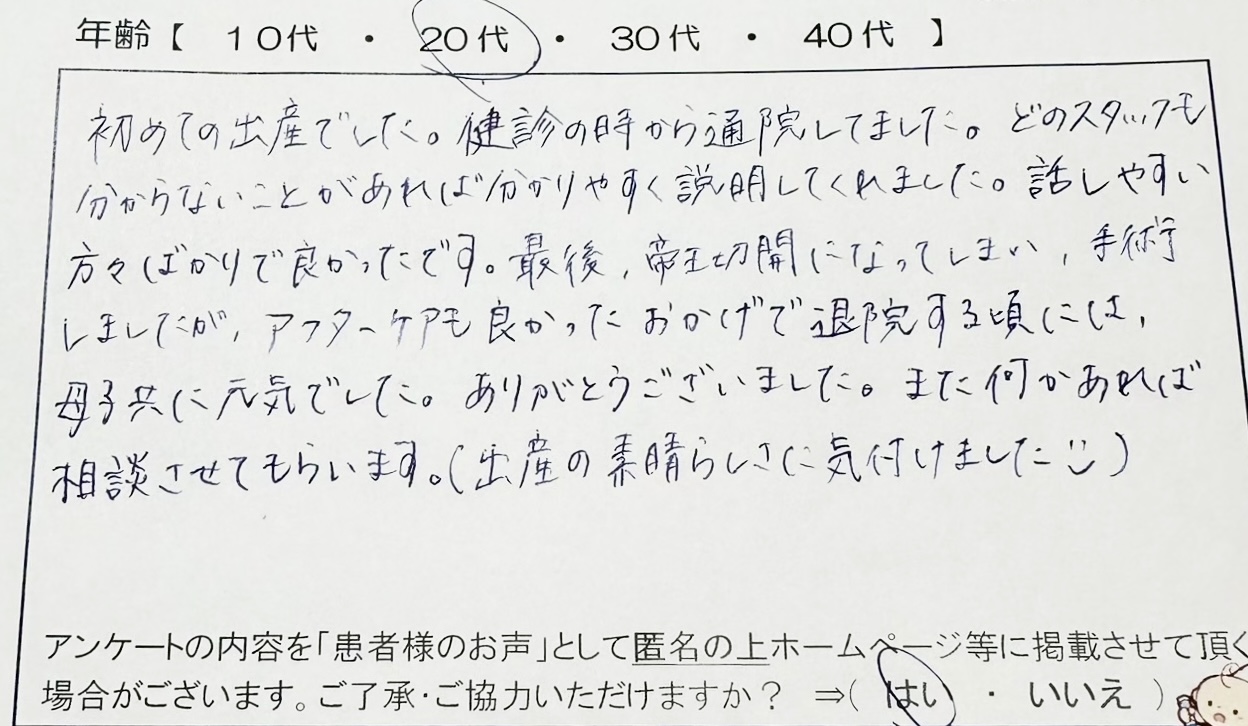 年齢【 10代 ・ 20代 ・ 30代 ・ 40代 】
初めての出産でした。健診の時から通院してました。どのスタッフも
分からないことがあれば分かりやすく説明してくれました。話しやすい
方々ばかりで良かったです。最後、帝王切開になってしまい、手術
しましたが、アフターケアも良かったおかげで退院する頃には、
母子共に元気でした。ありがとうございました。また何かあれば
相談させてもらいます。(出産の素晴らしさに気付けました)
アンケートの内容を「患者様のお声」として匿名の上ホームページ等に掲載させて頂く
場合がございます。ご了承・ご協力いただけますか? ⇒( はい ・ いいえ )